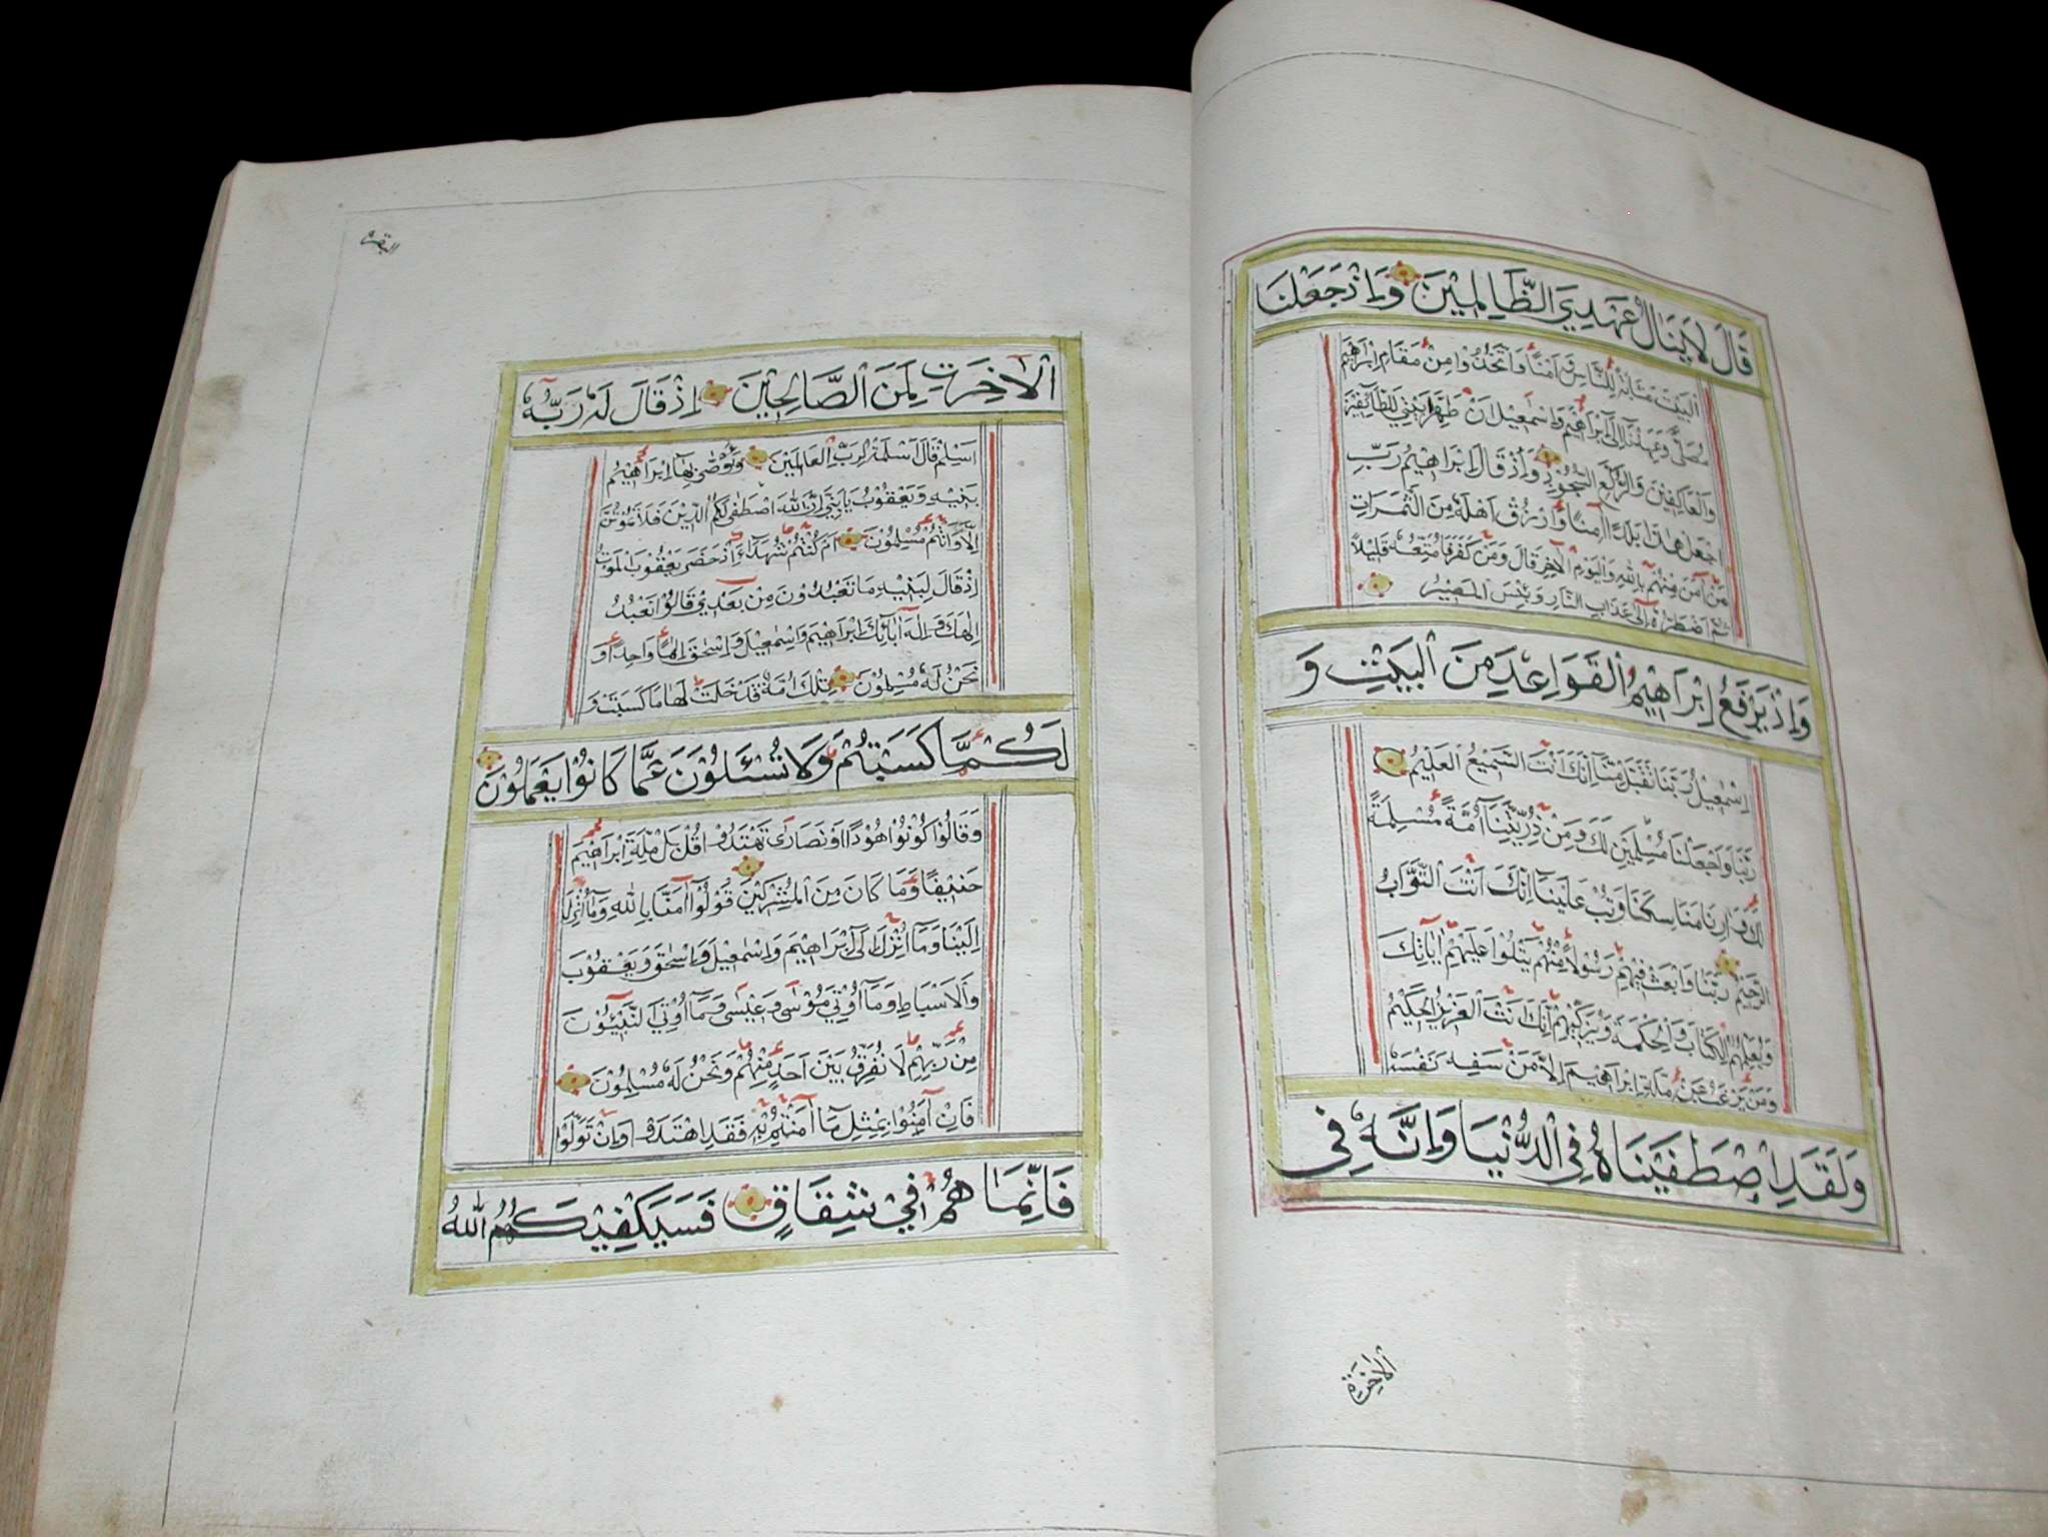 قَالَ لَا يَنَالُ عَهْدِي الظَّالِمِيْنَ وَاِذْ جَعَلْنَا
الْبَيْتَ مَثَابَةً لِّلنَّاسِ وَ اَمْنًا وَاتَّخِذُوْا مِنْ مَقَامِ اِبْرَاهِيْمَ
مُصَلًّى وَعَهِدْنَا اِلَى اِبْرَاهِيْمَ وَاِسْمٰعِيْلَ اَنْ طَهِّرَا بَيْتِيَ لِلطَّائِفِيْنَ
وَالْعَاكِفِيْنَ وَالرُّكَّعِ السُّجُوْدِ وَاِذْ قَالَ اِبْرَاهِيْمُ رَبِّ
اجْعَلْ هٰذَا بَلَدًا اٰمِنًا وَّارْزُقْ اَهْلَهُ مِنَ الثَّمَرَاتِ
مَنْ اٰمَنَ مِنْهُمْ بِاللّٰهِ وَالْيَوْمِ الْاٰخِرِ قَالَ وَمَنْ كَفَرَ فَاُمَتِّعُهُ قَلِيْلًا
ثُمَّ اَضْطَرُّهُ اِلٰى عَذَابِ النَّارِ وَبِئْسَ الْمَصِيْرُ
وَاِذْ يَرْفَعُ اِبْرَاهِيْمُ الْقَوَاعِدَ مِنَ الْبَيْتِ وَ
اِسْمٰعِيْلُ رَبَّنَا تَقَبَّلْ مِنَّا اِنَّكَ اَنْتَ السَّمِيْعُ الْعَلِيْمُ
رَبَّنَا وَاجْعَلْنَا مُسْلِمَيْنِ لَكَ وَمِنْ ذُرِّيَّتِنَا اُمَّةً مُسْلِمَةً
لَكَ وَاَرِنَا مَنَاسِكَنَا وَتُبْ عَلَيْنَا اِنَّكَ اَنْتَ التَّوَّابُ
الرَّحِيْمُ رَبَّنَا وَابْعَثْ فِيْهِمْ رَسُوْلًا مِنْهُمْ يَتْلُوْا عَلَيْهِمْ اٰيَاتِكَ
وَيُعَلِّمُهُمُ الْكِتَابَ وَالْحِكْمَةَ وَيُزَكِّيْهِمْ اِنَّكَ اَنْتَ الْعَزِيْزُ الْحَكِيْمُ
وَمَنْ يَرْغَبُ عَنْ مِلَّةِ اِبْرَاهِيْمَ اِلَّا مَنْ سَفِهَ نَفْسَهُ
وَلَقَدِ اصْطَفَيْنَاهُ فِي الدُّنْيَا وَاِنَّهُ فِي
الْاٰخِرَةِ
البقرة
الْاٰخِرَتِ لَمِنَ الصَّالِحِيْنَ اِذْ قَالَ لَهُ رَبُّهُ
اَسْلِمْ قَالَ اَسْلَمْتُ لِرَبِّ الْعَالَمِيْنَ وَوَصّٰى بِهَا اِبْرَاهِيْمُ
بَنِيْهِ وَيَعْقُوْبُ يَابَنِيَّ اِنَّ اللّٰهَ اصْطَفٰى لَكُمُ الدِّيْنَ فَلَا تَمُوْتُنَّ
اِلَّا وَاَنْتُمْ مُسْلِمُوْنَ اَمْ كُنْتُمْ شُهَدَاءَ اِذْ حَضَرَ يَعْقُوْبَ الْمَوْتُ
اِذْ قَالَ لِبَنِيْهِ مَا تَعْبُدُوْنَ مِنْ بَعْدِيْ قَالُوْا نَعْبُدُ
اِلٰهَكَ وَاِلٰهَ اٰبَائِكَ اِبْرَاهِيْمَ وَاِسْمٰعِيْلَ وَاِسْحٰقَ اِلٰهًا وَاحِدًا وَ
نَحْنُ لَهُ مُسْلِمُوْنَ تِلْكَ اُمَّةٌ قَدْ خَلَتْ لَهَا مَا كَسَبَتْ وَ
لَكُمْ مَّا كَسَبْتُمْ وَلَا تُسْئَلُوْنَ عَمَّا كَانُوْا يَعْمَلُوْنَ
وَقَالُوْا كُوْنُوْا هُوْدًا اَوْ نَصَارٰى تَهْتَدُوْا قُلْ بَلْ مِلَّةَ اِبْرَاهِيْمَ
حَنِيْفًا وَمَا كَانَ مِنَ الْمُشْرِكِيْنَ قُوْلُوْا اٰمَنَّا بِاللّٰهِ وَمَا اُنْزِلَ
اِلَيْنَا وَمَا اُنْزِلَ اِلٰى اِبْرَاهِيْمَ وَاِسْمٰعِيْلَ وَاِسْحٰقَ وَيَعْقُوْبَ
وَالْاَسْبَاطِ وَمَا اُوْتِيَ مُوْسٰى وَعِيْسٰى وَمَا اُوْتِيَ النَّبِيُّوْنَ
مِنْ رَبِّهِمْ لَا نُفَرِّقُ بَيْنَ اَحَدٍ مِنْهُمْ وَنَحْنُ لَهُ مُسْلِمُوْنَ
فَاِنْ اٰمَنُوْا بِمِثْلِ مَا اٰمَنْتُمْ بِهِ فَقَدِ اهْتَدَوْا وَاِنْ تَوَلَّوْا
فَاِنَّمَا هُمْ فِيْ شِقَاقٍ فَسَيَكْفِيْكَهُمُ اللّٰهُ